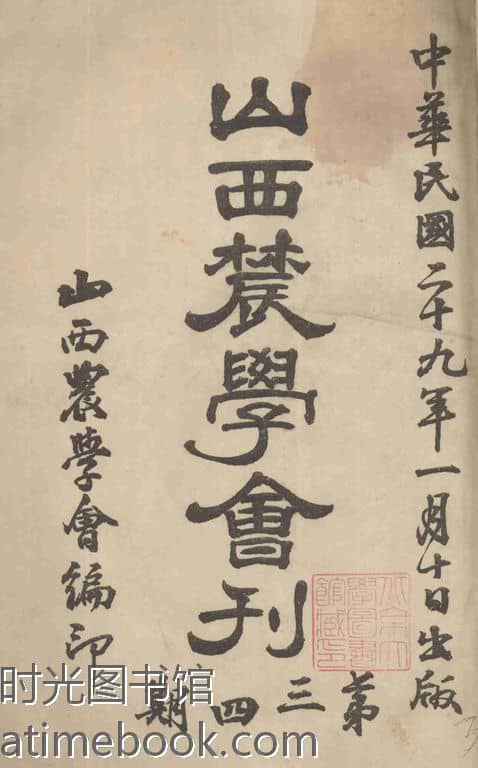 中華民國二十九年一月十日出版
山西辳學會刊
第三四期
山西農學會編印
北京大
學圖書
館藏印
时光图书馆
atimebook.com